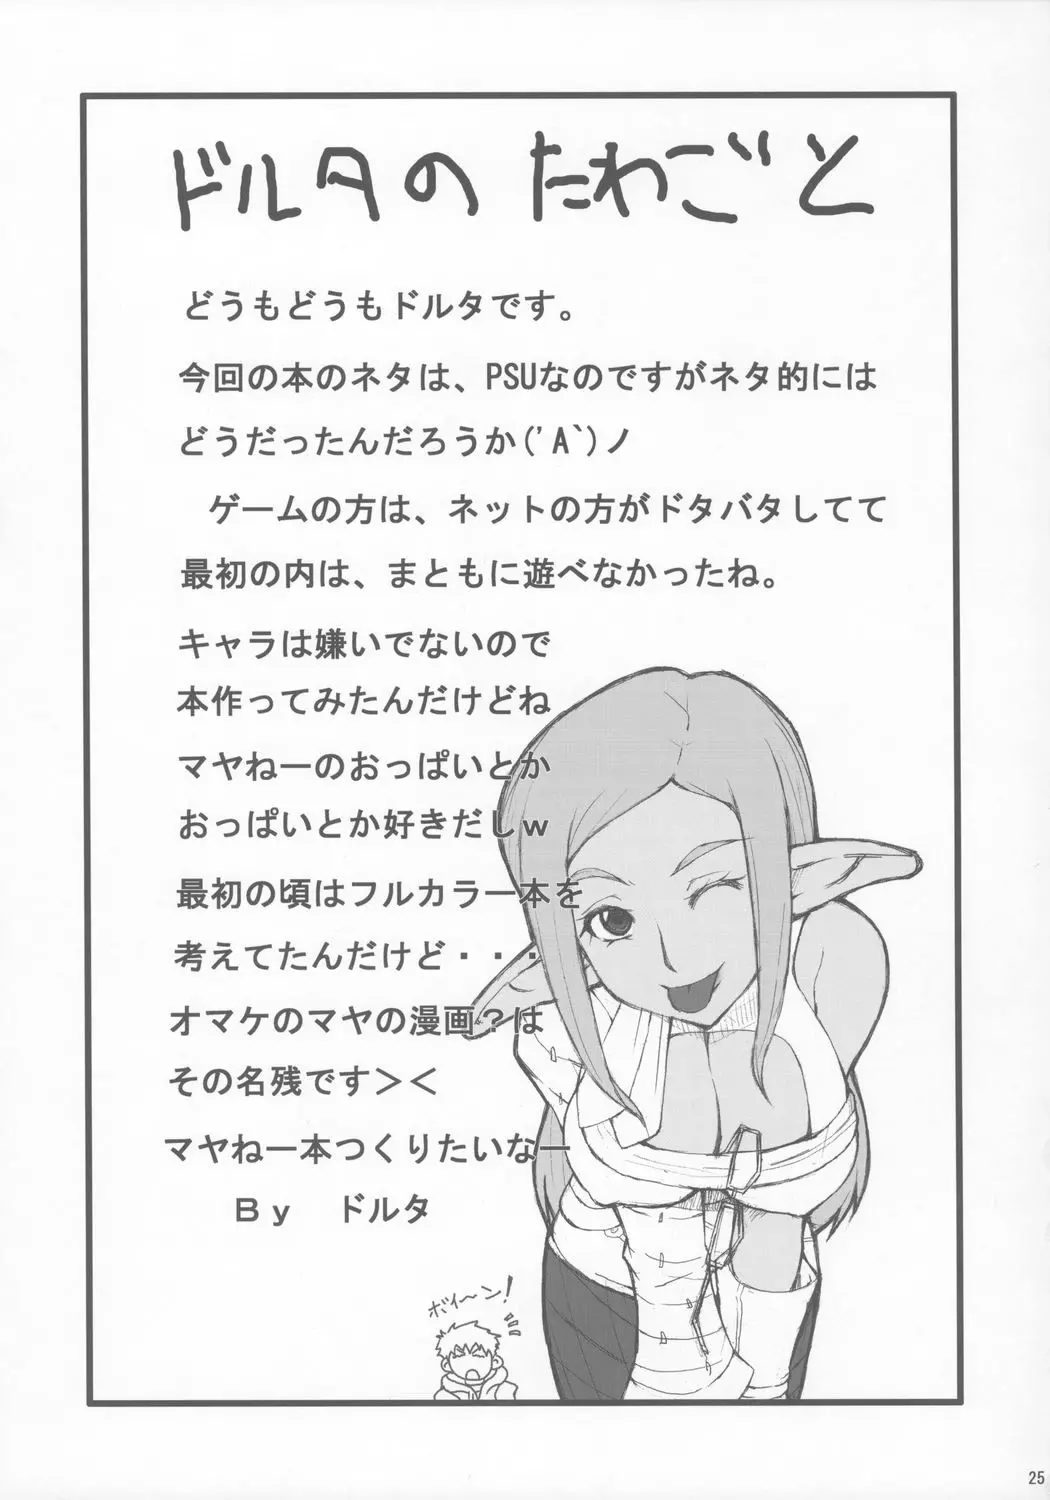 ドルタの たわごと
どうもどうもドルタです。
今回の本のネタは、PSUなのですがネタ的には
どうだったんだろうか('A`)ノ
　ゲームの方は、ネットの方がドタバタしてて
最初の内は、まともに遊べなかったね。
キャラは嫌いでないので
本作ってみたんだけどね
マヤねーのおっぱいとか
おっぱいとか好きだしｗ
最初の頃はフルカラー本を
考えてたんだけど・・・
オマケのマヤの漫画？は
その名残です＞＜
マヤねー本つくりたいなー
Ｂｙ　ドルタ
ボイ〜ン!
25